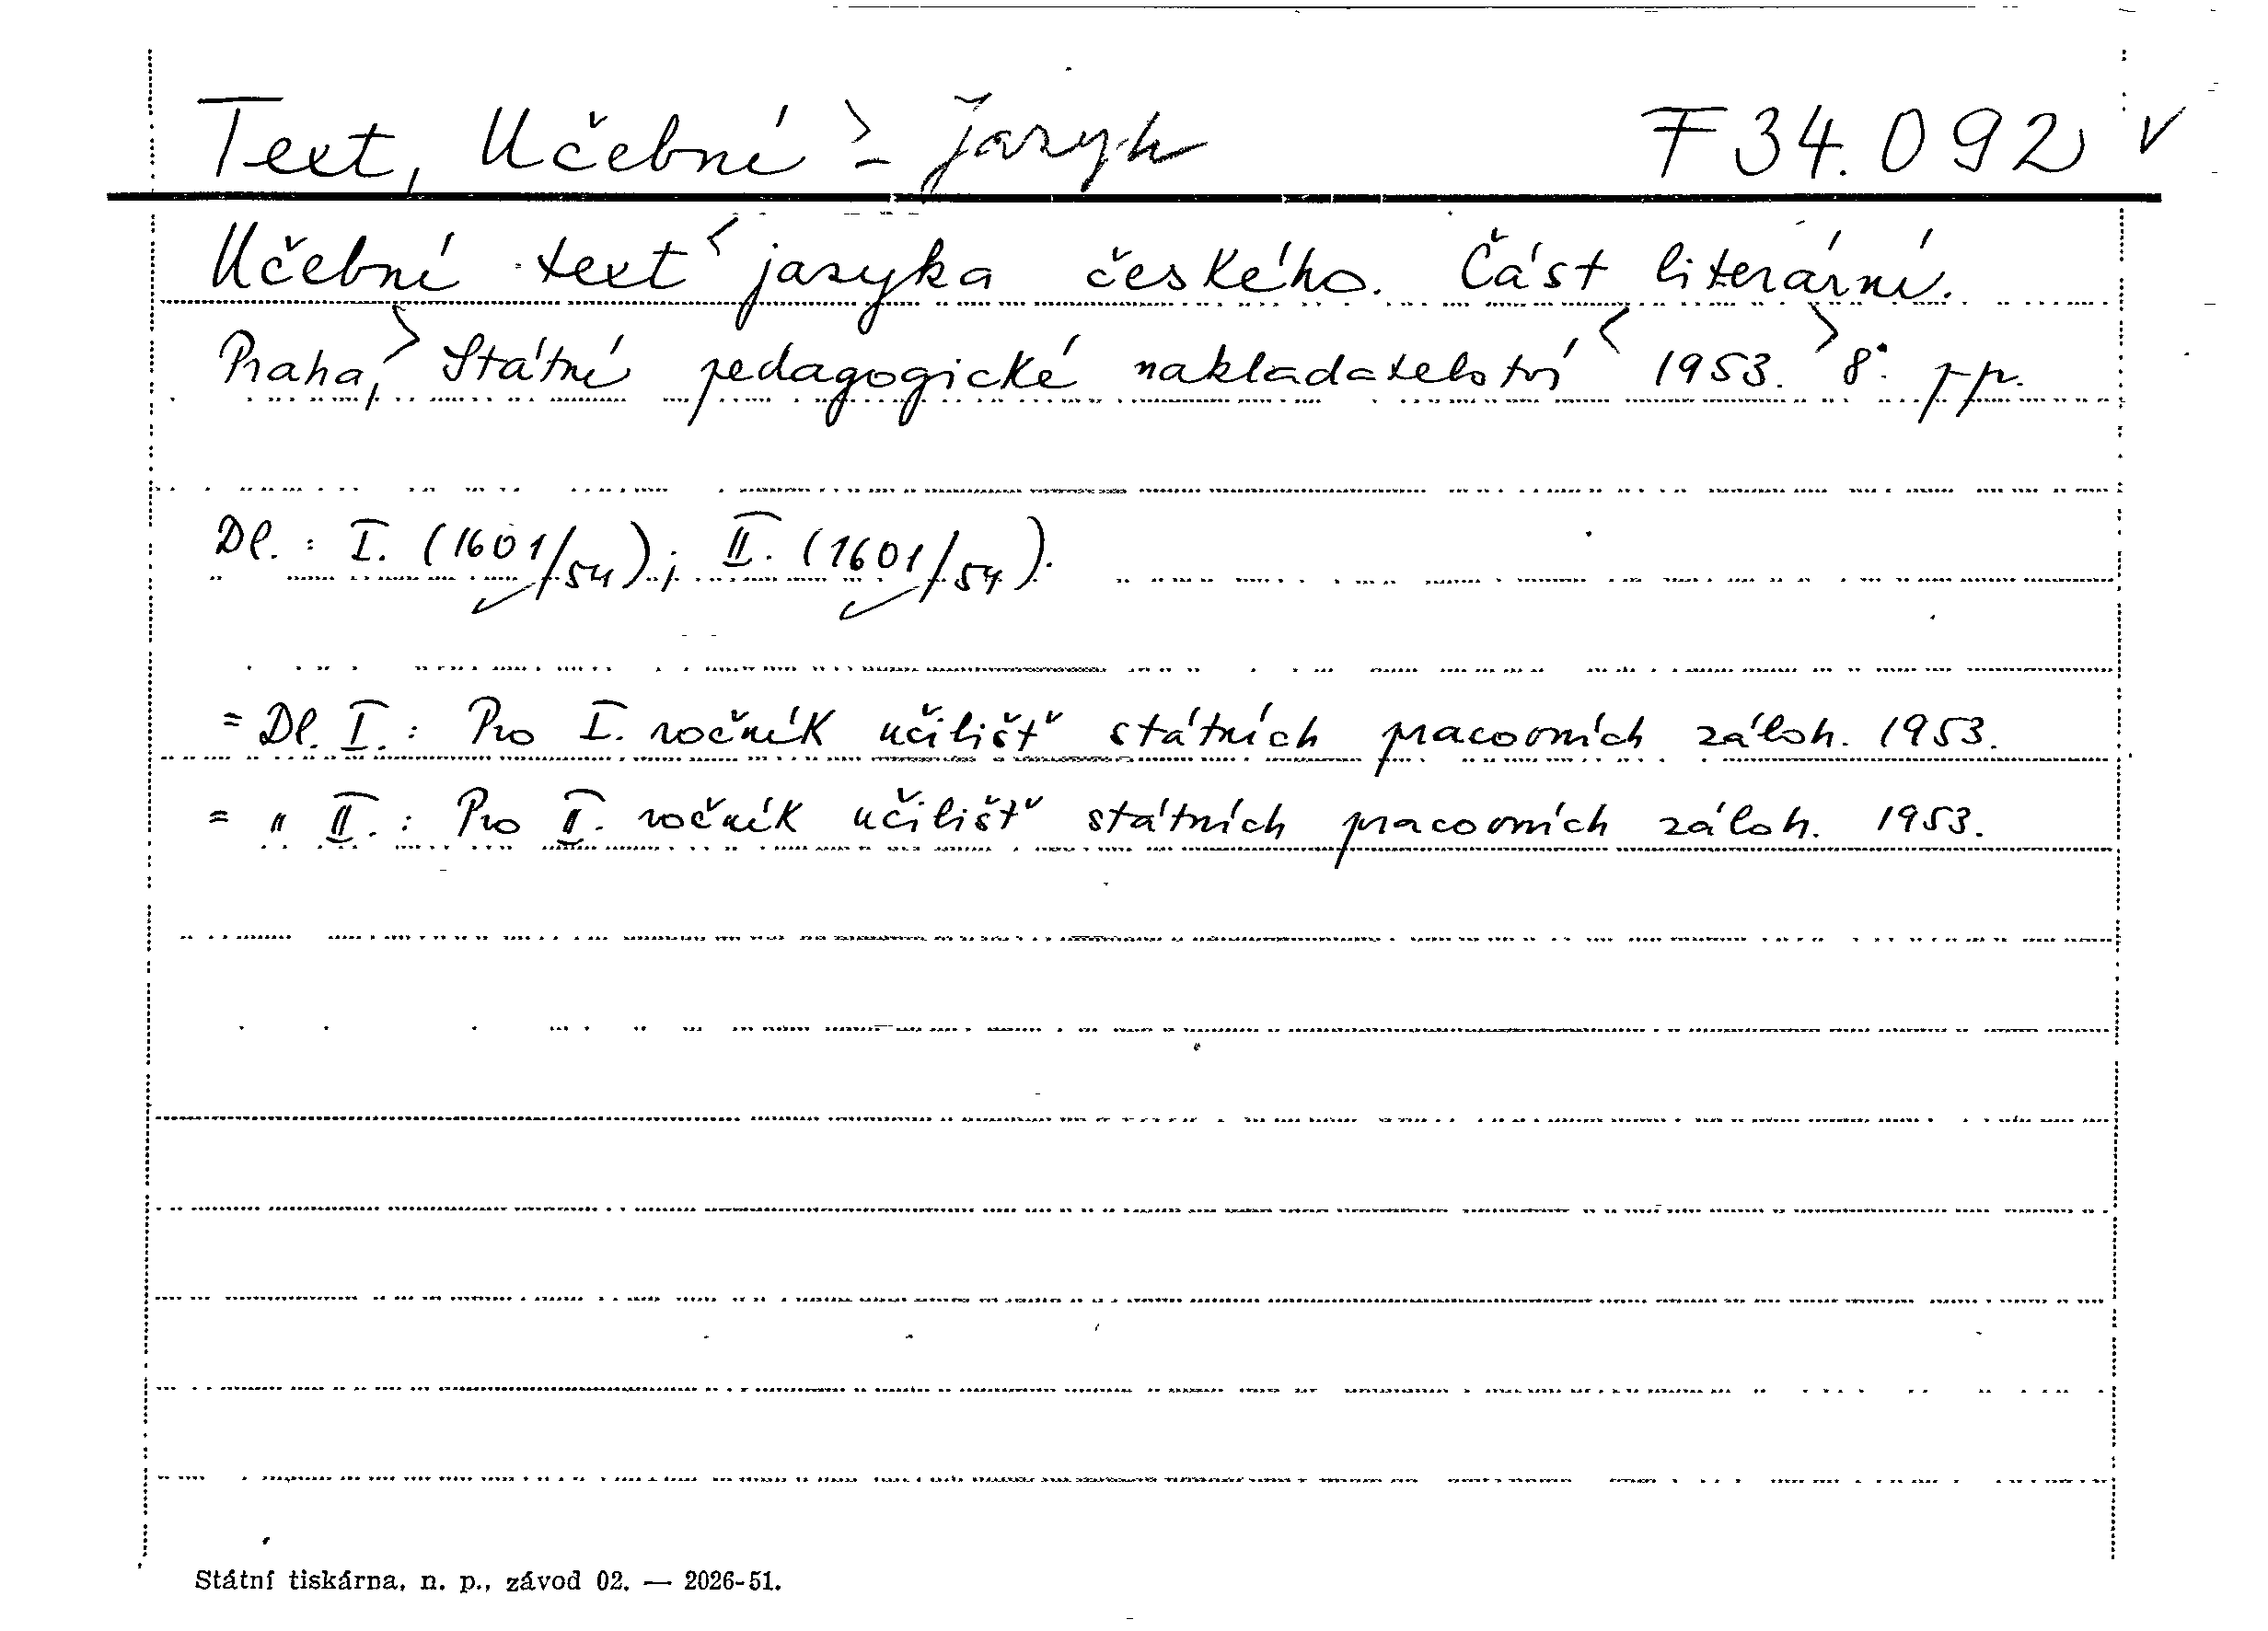 Text, Učební > - Jazyk F 34.092 v
Učební text < jazyka českého. Část literární.
Praha, > Státní pedagogické nakladatelství < 1953. > 8°. pp.
Dl. : I. (1601/54); II. (1601/54).
= Dl. I. : Pro I. ročník učilišť státních pracovních záloh. 1953.
= " II. : Pro II. ročník učilišť státních pracovních záloh. 1953.
Státní tiskárna, n. p., závod 02. — 2026-51.